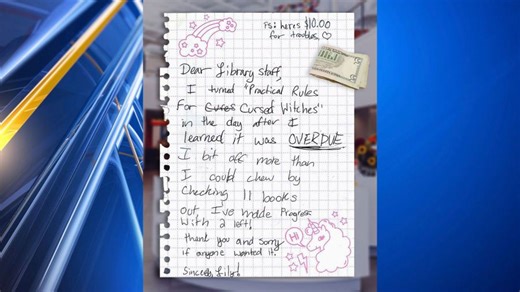 Ps: here's $10.00
for troubles ♡
Dear Library staff,
I turned "Practical Rules
For Cures Cursed Witches"
in the day after I
learned it was OVERDUE
I bit off more than
I could chew by
Checking 11 books
out I've made Progress
with 2 left!
thank you and sorry
if anyone wanted it.
Sincerely, Lily!
Hi